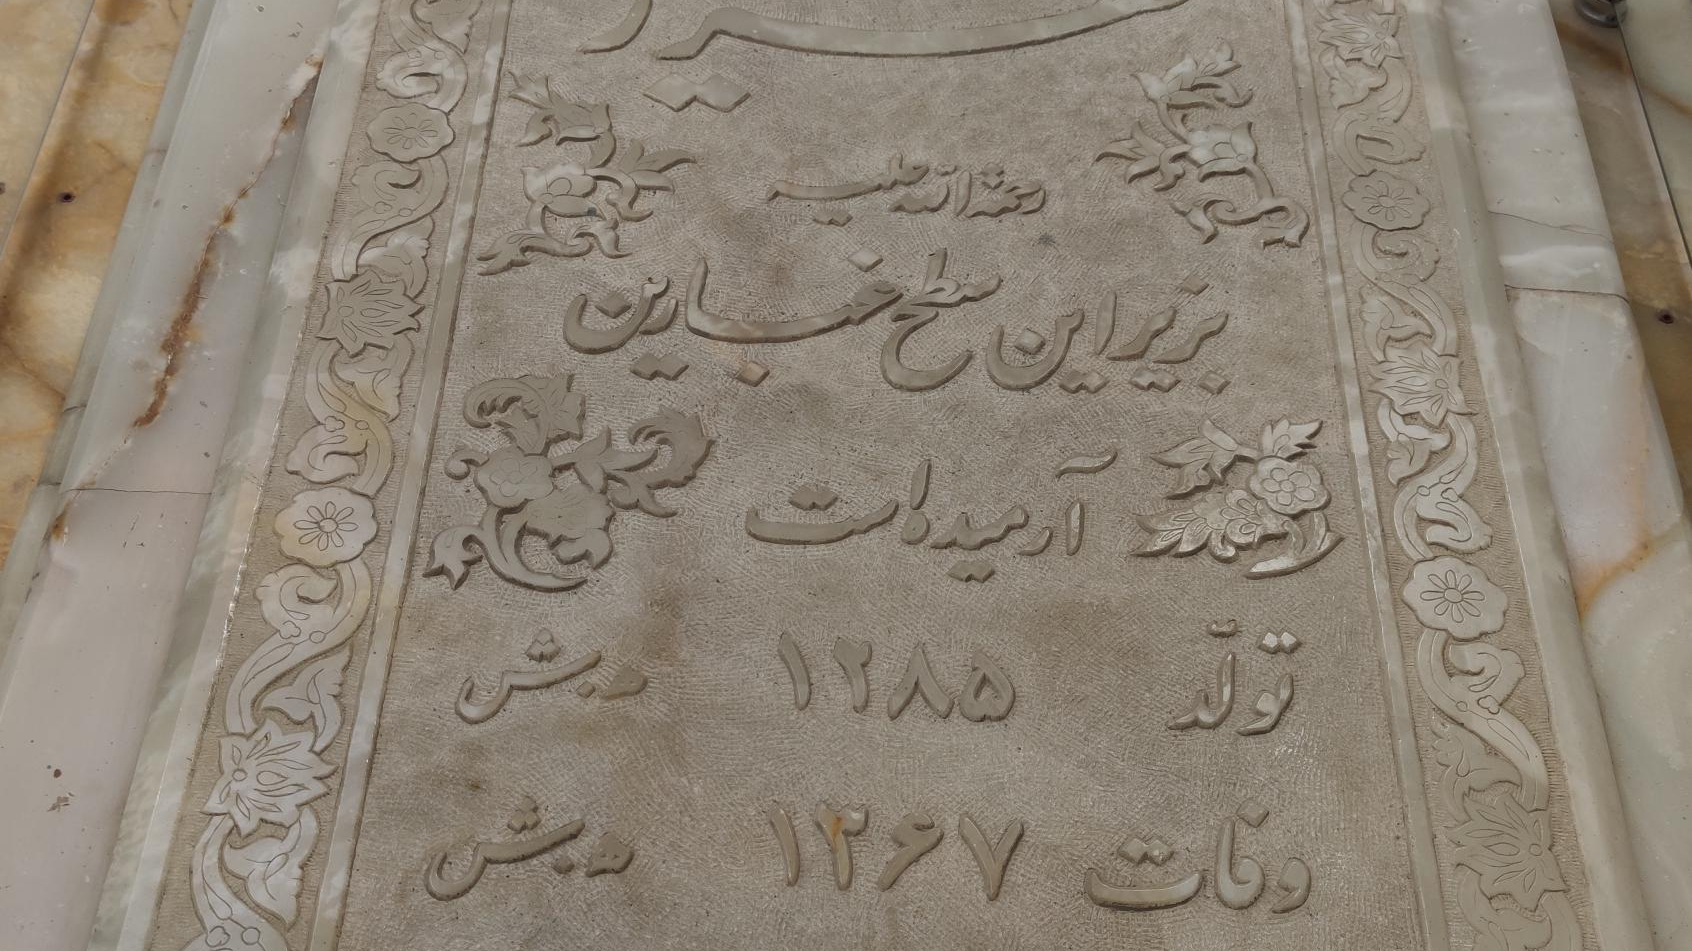 رحمةالله علیه
بزیر این سطح غبارین
آرمیده است
تولّد ۱۲۸۵ ه‍.ش
وفات ۱۳۶۷ ه‍.ش